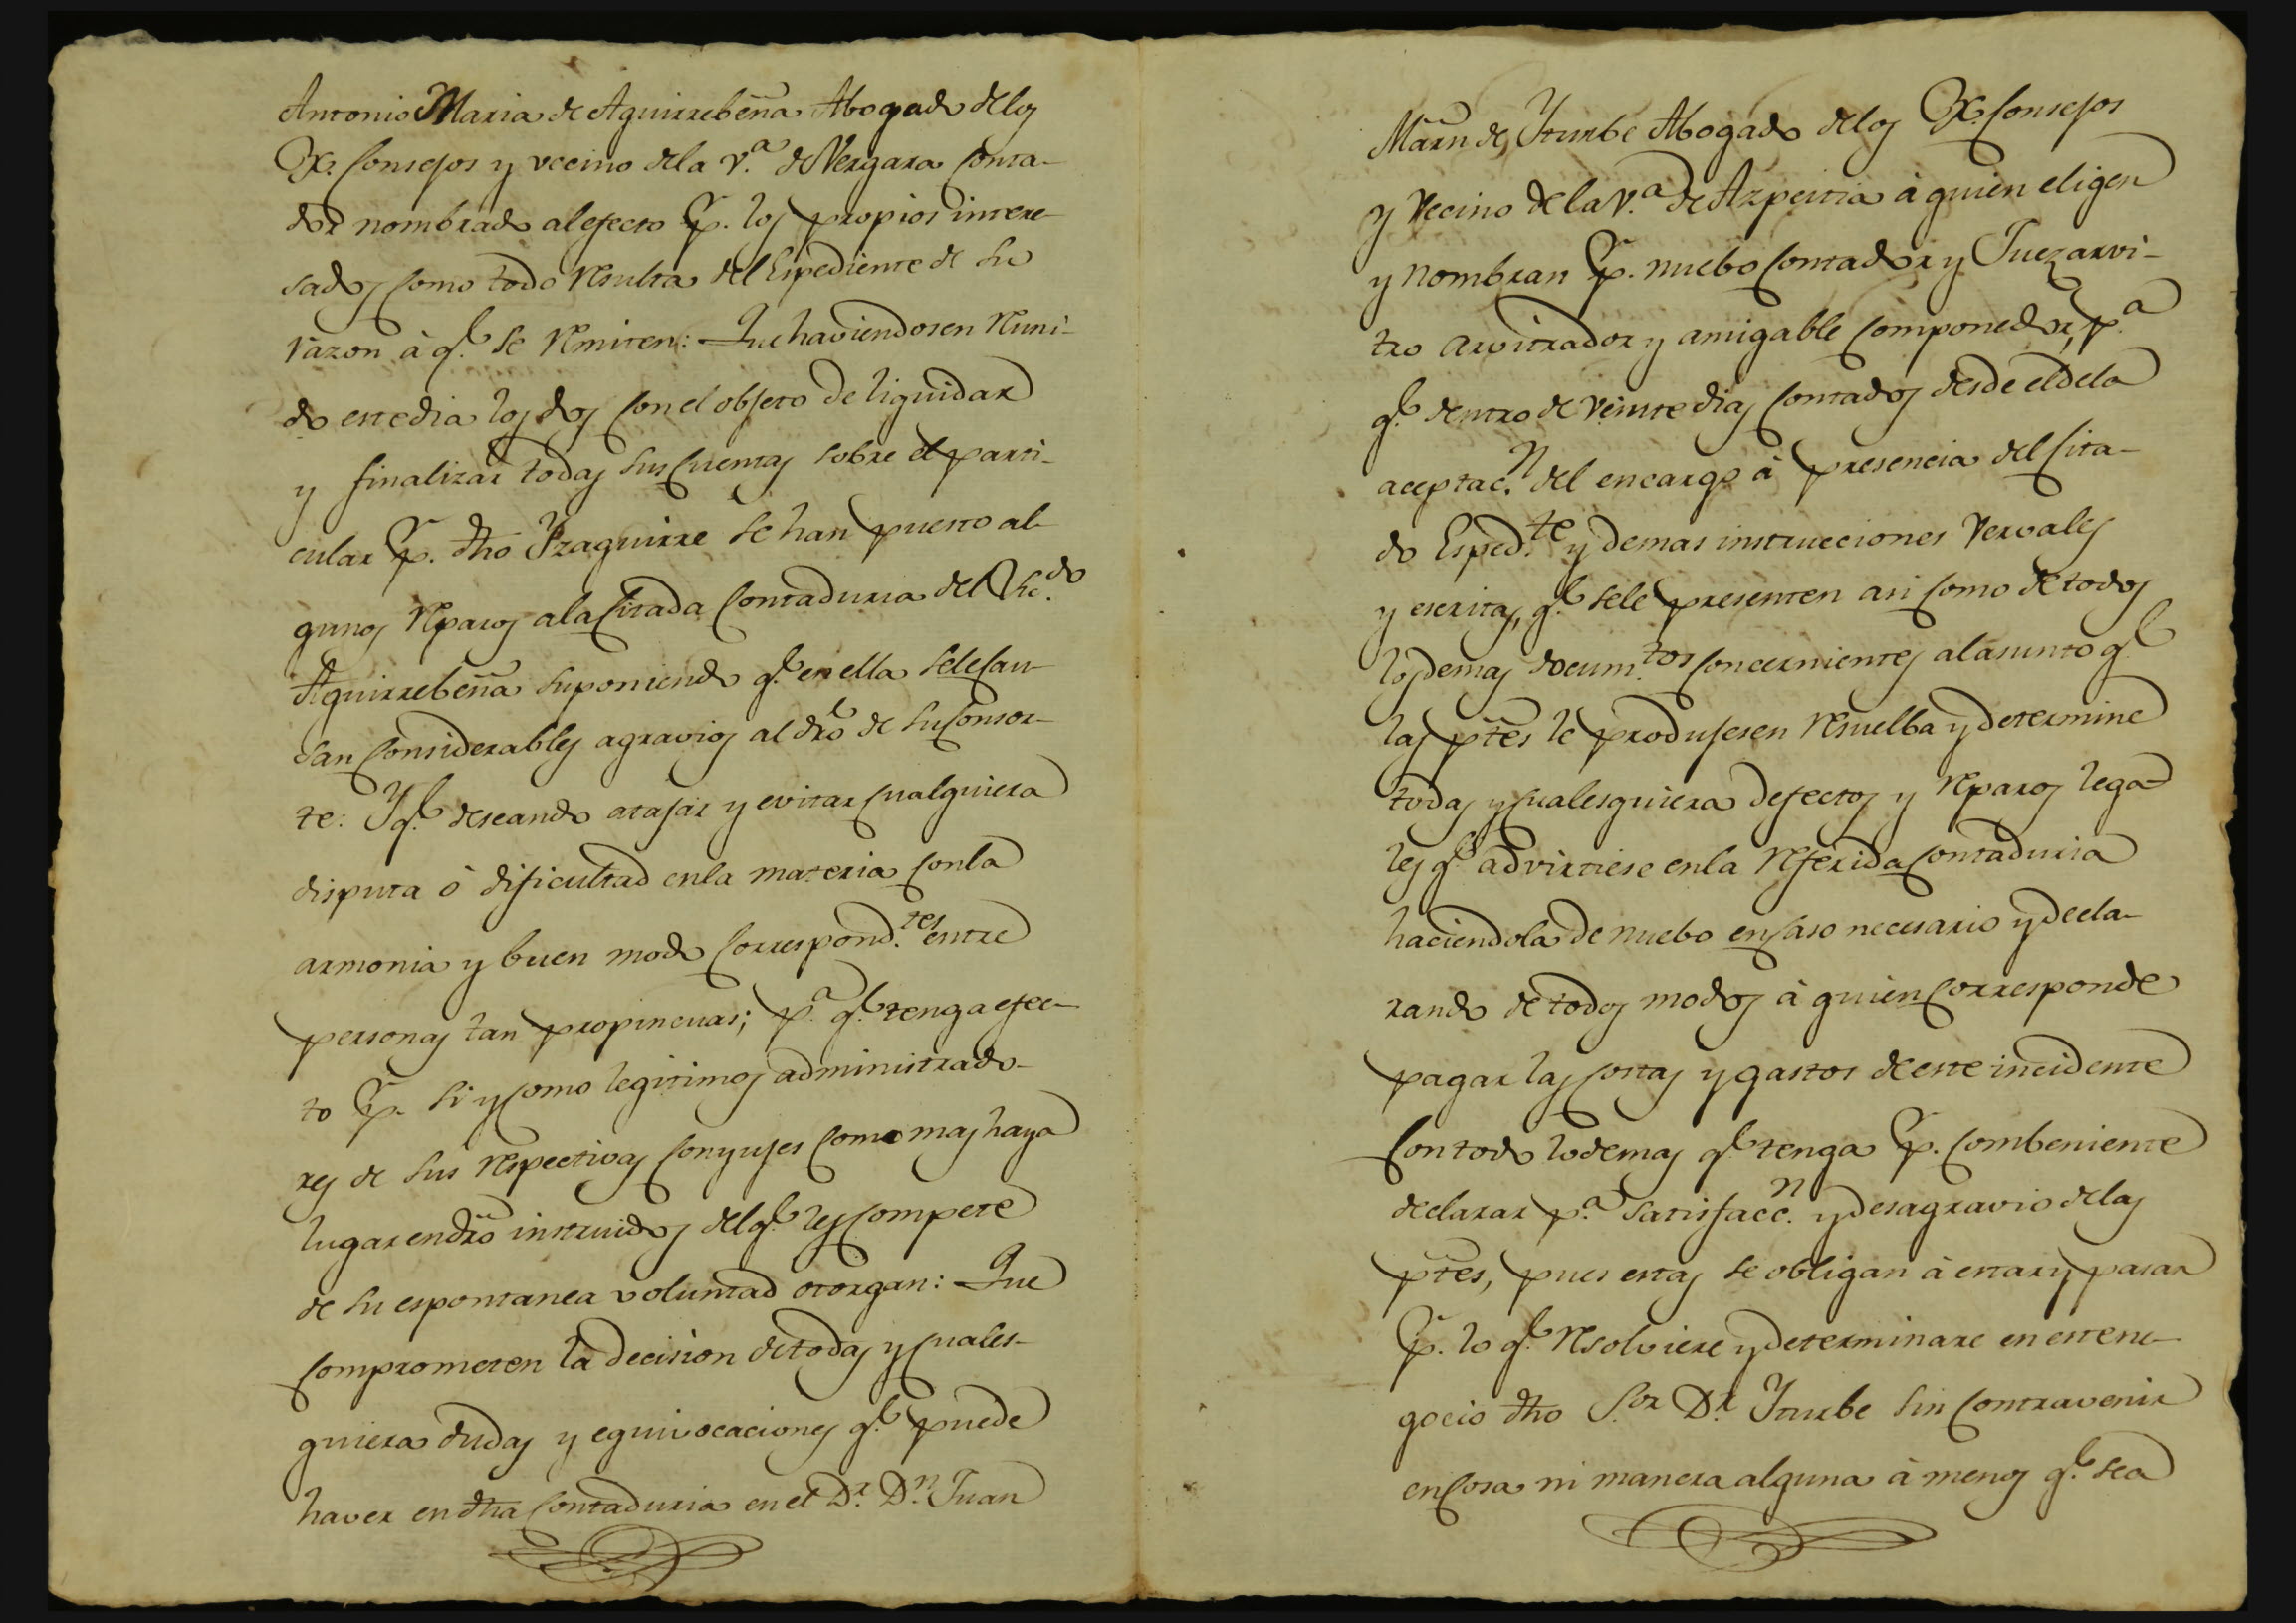 Antonio Maria de Aguirrebeña Abogado delos
Rs. Consejos y vecino dela v.ª de Vergara Conta-
dor nombrado al efecto p.r los propios intere-
sados como todo resulta del Espediente de su
razon à q.e se remiten: Que haviendosen reuni-
do este dia los dos con el objeto de liquidar
y finalizar todas sus cuentas sobre el parti-
cular p.r dho Yzaguirre se han puesto al-
gunos reparos ala Citada Contaduria del Lic.do
Aguirrebeña suponiendo q.e en ella sele Cau-
san Considerables agravios al dro de su Consor-
te: Y q.e deseando atajar y evitar qualquiera
disputa ò dificultad enla materia conla
armonia y buen modo Correspond.tes entre
personas tan propincuas; p.a q.e tenga efec-
to p.r si y como legitimos administrado-
res de sus respectivas Conyujes Como mas haya
lugar en dro instruidos del q.e les Compete
de su espontanea voluntad otorgan: Que
Comprometen la decision de todas y quales-
quiera dudas y equivocaciones q.e puede
haver en dha Contaduria en el D.r D.n Juan
Martn de Yturbe Abogado delos Rs. Consejos
y Vecino dela V.ª de Azpeitia à quien eligen
y nombran p.r nuebo Contador y Juez arvi-
tro arvitrador y amigable Componedor, p.a
q.e dentro de veinte dias Contados desde el dela
aceptac.n del encargo à presencia del Cita-
do Esped.te y demas instrucciones Vervales
y escritas, q.e sele presenten asi Como de todos
los demas docum.tos Concernientes al asunto q.e
las ptes le produjesen resuelba y determine
todas y qualesquiera defectos y reparos lega-
les q.e advirtiese enla referida Contaduria
haciendola de nuebo en Caso necesario y decla-
rando de todos modos à quien Corresponde
pagar las Costas y gastos de este incidente
Con todo lo demas q.e tenga p.r Combeniente
declarar p.a satisfacc.n y desagravio delas
ptes, pues estas se obligan à estar y pasar
p.r lo q.e resolviere y determinare en este ne-
gocio dho S.or D.r Yturbe sin Contravenir
en Cosa ni manera alguna à menos q.e sea